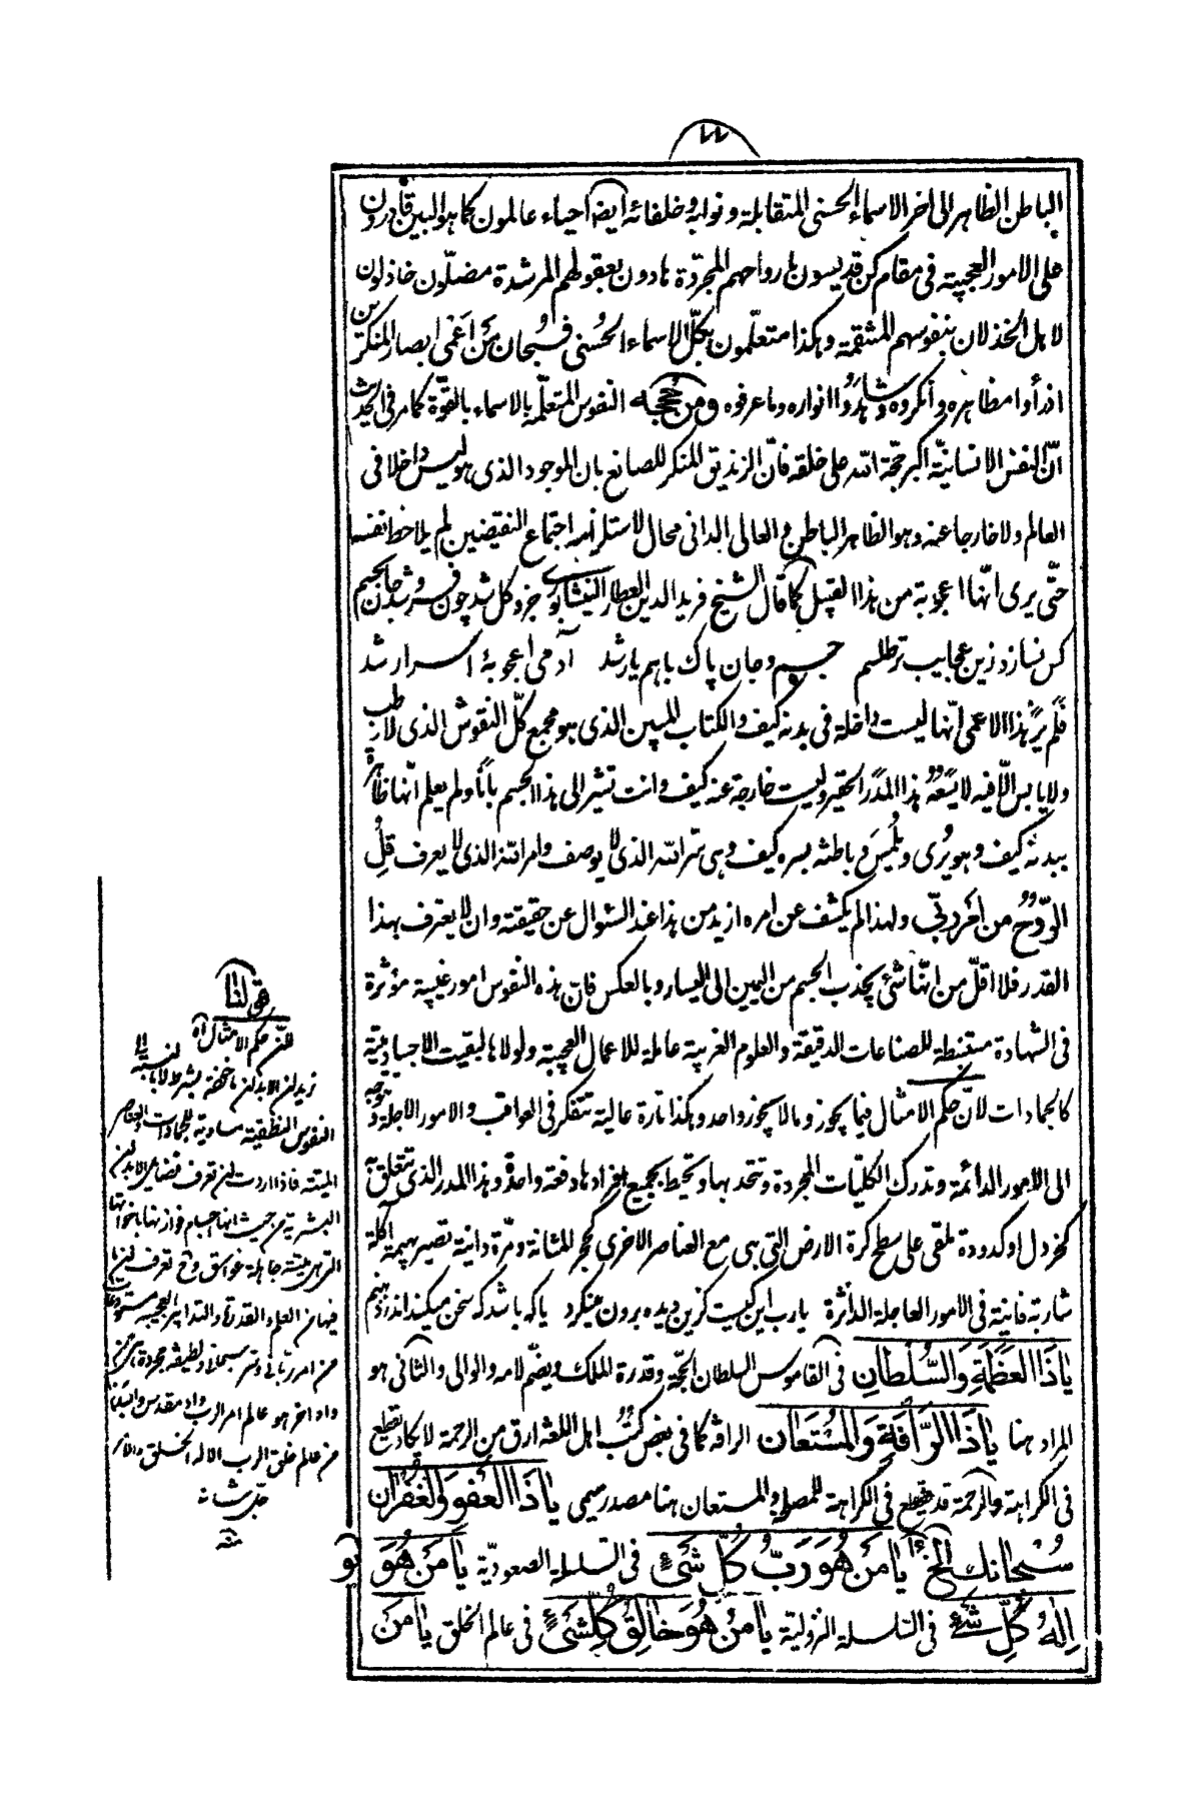 ٧٧
الباطن الظاهر الى اخر الاسماء الحسنى المتقابلة ونوابه وخلفائه ايضا احياء عالمون كما هو البين قادرون
على الامور العجيبة فى مقام كن قديسون بارواحهم المجردة هادون بعقولهم المرشدة مضلّون خاذلون
لاهل الخذلان بنفوسهم المنتقمة وهكذا متعلّمون بكلّ الاسماء الحسنى فسُبحان مَن اَعْمى ابصار المنكرين
اذ رأوا مظاهره وانكروه وشاهَدُوا انواره وما عرفوه ومن حُججه النفوس المتعلّمة بالاسماء بالقوّة كما مر فى الحديث
انّ النفس الانسانيّة اكبر حجّة الله على خلقه فانّ الزنديق المنكر للصانع بان الموجود الذى هو ليس داخلا فى
العالم ولا خارجا عنه وهو الظاهر الباطن والعالى الدانى محال لاستلزامه اجتماع النقيضين لم يلاحظ نفسه
حتّى يرى انّها اعجوبة من هذا القبيل كما قال الشيخ فريد الدين العطار النيشابورى جزو كل شد چون فرو شد جان بجسم
كس نسازد زين عجايب تر طلسم جسم وجان پاك باهم يار شد آدمى اعجوبۀ اسرار شد
فَلَم يَرَ هذا الاعمى انّها ليست داخلة فى بدنه كيف والكتاب المبين الذى هو مجمع كلّ النقوش الذى لا رطب
ولا يابس الّا فيه لا يَسَعُهُ هذا المَدَر الحقير وليست خارجة عنه كيف وانت تشير الى هذا الجسم بأنأ ولم يعلم انّها ظاهرة
ببدنه كيف وهو يُرى ويُلمَسُ وباطنة بسره كيف وهى سرّ الله الذى لا يوصف وامر الله الذى لا يعرف قلِ
الرّوُحُ من اَمْرِ ربّى ولهذا لم يكشف عن امره ازيد من هذا عند السؤال عن حقيقته وان لا يعترف بهذا
القدر فلا اقلّ من انّها شئ يجذب الجسم من اليمين الى اليسار وبالعكس فان هذه النفوس امور غيبية مؤثرة
فى الشهادة مستنبطة للصناعات الدقيقة والعلوم الغريبة عاملة للاعمال العجيبة ولولاها لبقيت الاجساد ميتة
كالجمادات لانّ حكم الامثال فيما يجوز وما لا يجوز واحد وهكذا تارة عالية تتفكر فى العواقب والامور الاجلة وتتوجه
الى الامور الدائمة وتدرك الكليّات المجردة وتتحد بها وتحيط بجميع افرادها دفعة واحدة وهذا المدر الذى تتعلق به
كخردل او كدودة ملقى على سطح كرة الارض التى هى مع العناصر الاخرى كحجر المثانة ومرّة دانية تصير بهيمة آكلة
شاربة فانية فى الامور العاجلة الداثرة يارب اين كيست كزين ديده برون مينگرد يا كه باشد كه سخن ميكند اندر دهنم
يَاذَا العَظَمَةِ وَالسُّلْطانِ فى القاموس السلطان الحجّة وقدرة الملك ويضّم لامه والوالى والثانى هو
المراد هنا يَاذَا الرَّأفَةِ وَالمُسْتَعانِ الرافة كما فى بعض كتُب اهل اللغة ارق من الرحمة لا تكاد تقع
فى الكراهة والرحمة قد تقع فى الكراهة للمصلحة والمستعان هنا مصدر ميمى يَاذَا العَفْوِ وَالغُفْرانِ
سُبْحانَك الخ يَا مَنْ هُوَ رَبُّ كُلِّ شَئٍ فى السلسلة الصعوديّة يَا مَنْ هُوَ
اِلهُ كُلِّ شَئٍ فى السلسلة النزولية يَا مَنْ هُوَ خالِقُ كُلِّ شَئٍ فى عالم الخلق يَا مَنْ
هو
قولنا
لان حكم الامثال اه
نريد ان الابدان مأخوذة بشرط لا بالنسبة الى
النفوس النطقية مساوية للجمادات والعناصر
الميتة فاذا اردت ان تعرف فضائل الابدان
البشرية من حيث انها اجسام فوازنها باخواتها
التى هى ميتة جاهلة غواسق وح تعرف ان ما
فيها من العلم والقدرة والتدابير العجيبة مستودعات
من امر ربانى وسر سبحانى ولطيفة مجردة هى من
واد اخر هو عالم امر الرب واد مقدس والبدن
من عالم خلق الرب الا له الخلق والامر
جلّ شانه
منه